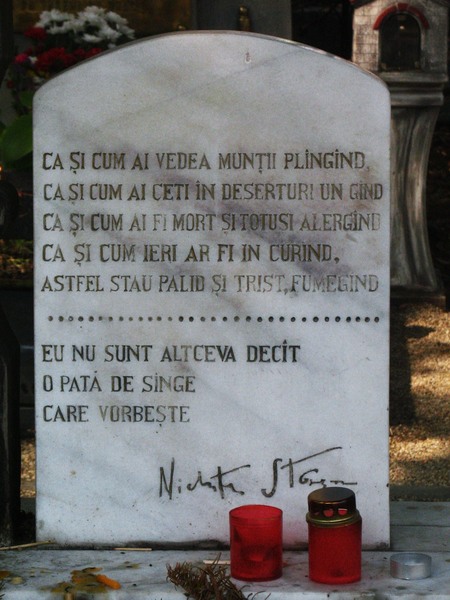 CA ȘI CUM AI VEDEA MUNȚII PLÎNGÎND,
CA ȘI CUM AI CETI ÎN DEȘERTURI UN GÎND
CA ȘI CUM AI FI MORT ȘI TOTUSI ALERGÎND
CA ȘI CUM IERI AR FI IN CURÎND,
ASTFEL STAU PALID ȘI TRIST, FUMEGÎND
EU NU SUNT ALTCEVA DECÎT
O PATĂ DE SÎNGE
CARE VORBEȘTE
Nichita Stănescu